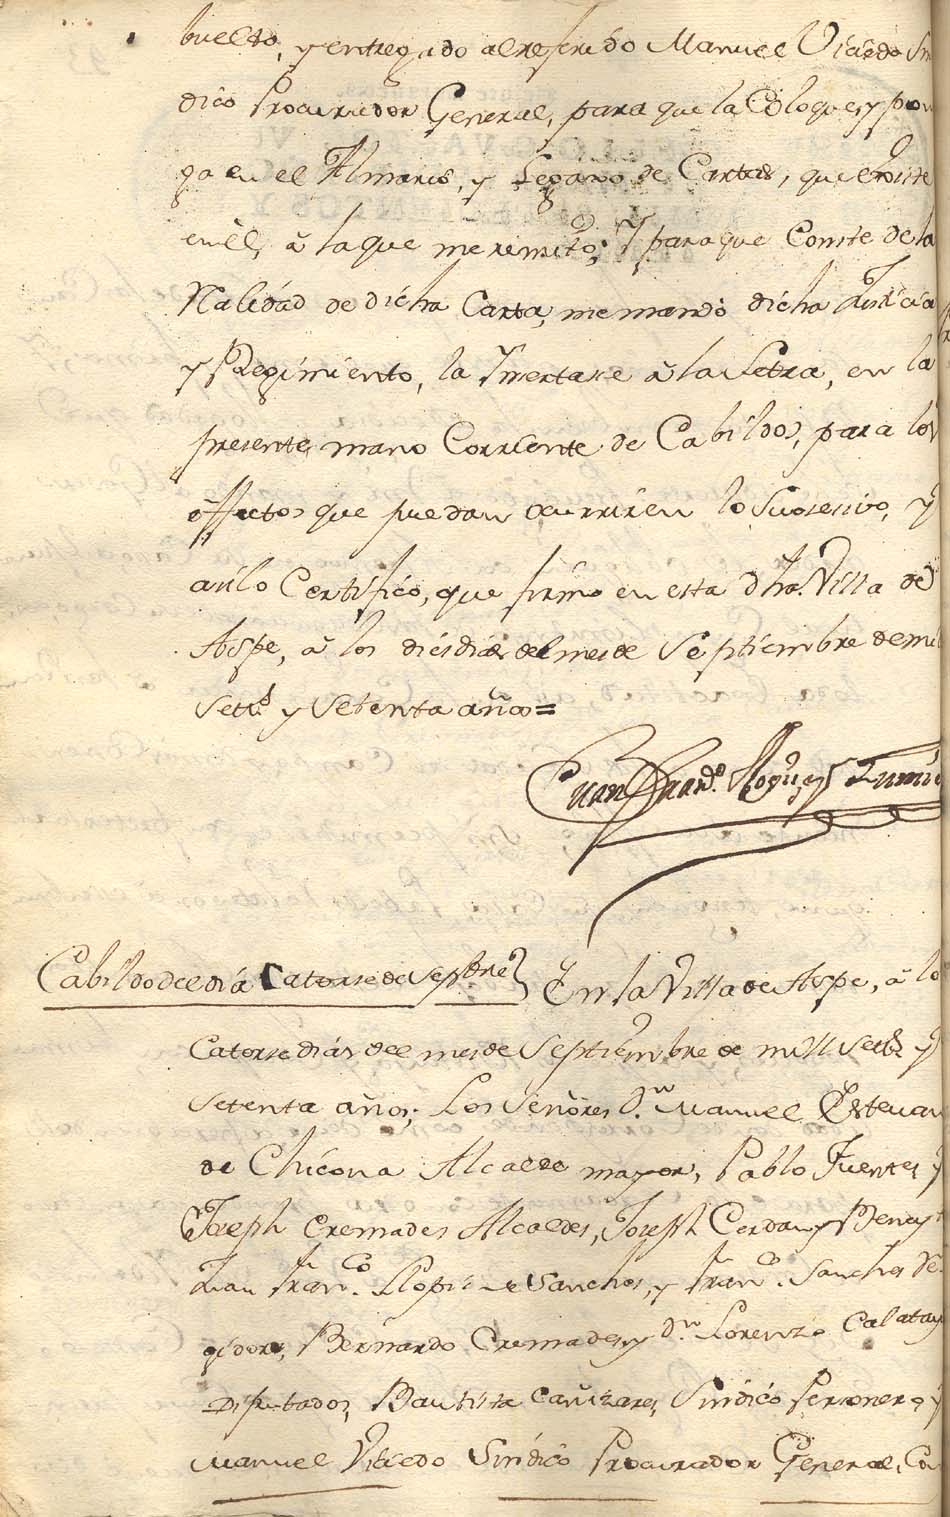 buelto, y entregado al referido Manuel Vicedo Sin
dico Procurador General, para que la Coloque, y pon
ga en el Almario, y Legaxo de Cartas, que Existe
en èl, â la que me remito; Y para que Conste de la
Nalidad de dicha Carta, me mandò dicha Justicia
y Regimiento, la Ynsertase â la Letra, en la
presente mano Corriente de Cabildos, para los
effectos que puedan ocurrir en lo Suscesivo, y
asilo Certifico, que firmo en esta dha. Villa de
Aspe, â los dies dias del mes de Septiembre de mil
Setts. y Setenta años=
Juan Fran.co Roque, y
Cabildo del dia Catorse de Sepbre
En la Villa de Aspe, â los
Catorse dias del mes de Septiembre de mill Setts. y
Setenta años; Los Señores Dn. Manuel Estevan
de Chicona Alcalde mayor, Pablo Fuentes, y
Joseph Cremades Alcaldes, Joseph Cerdan y Beneyt
Juan Fran.co Llopis de Sanches, y Fran.co Sanches Re
gidores, Bernardo Cremades, y Dn. Lorenzo Calatayu
Diputados, Bautista Cañizares, Sindico Personero, y
Manuel Vicedo Sindico Procurador General, Co